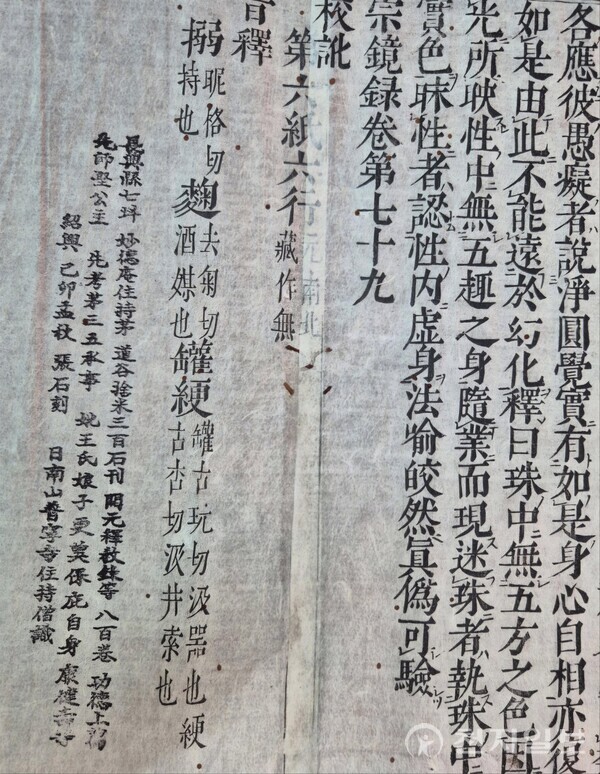 各應彼愚癡者說淨圓覺實有如是身心自相亦復
如是由此不能遠於幻化釋曰珠中無五方之色因
光所映性中無五趣之身隨業而現迷珠者執珠中
實色昧性者認性内虛身法喻皎然真僞可驗
宗鏡録卷第七十九
校訛
第六紙六行 藏作無
音釋
搦 昵格切 持也 麴 去匊切 酒媒也 罐綆 罐古玩切汲器也綆 古杏切汲井索也
長興縣七 妙德庵住持茅 道谷捨米三百石刊 開元釋教録等 八百卷 功德上
先師堅公主 先考茅三五承事 妣王氏娘子 更冀保庇自身 康健
紹興 己卯孟秋 張石刻 日南山普寧寺住持僧識
전지일보